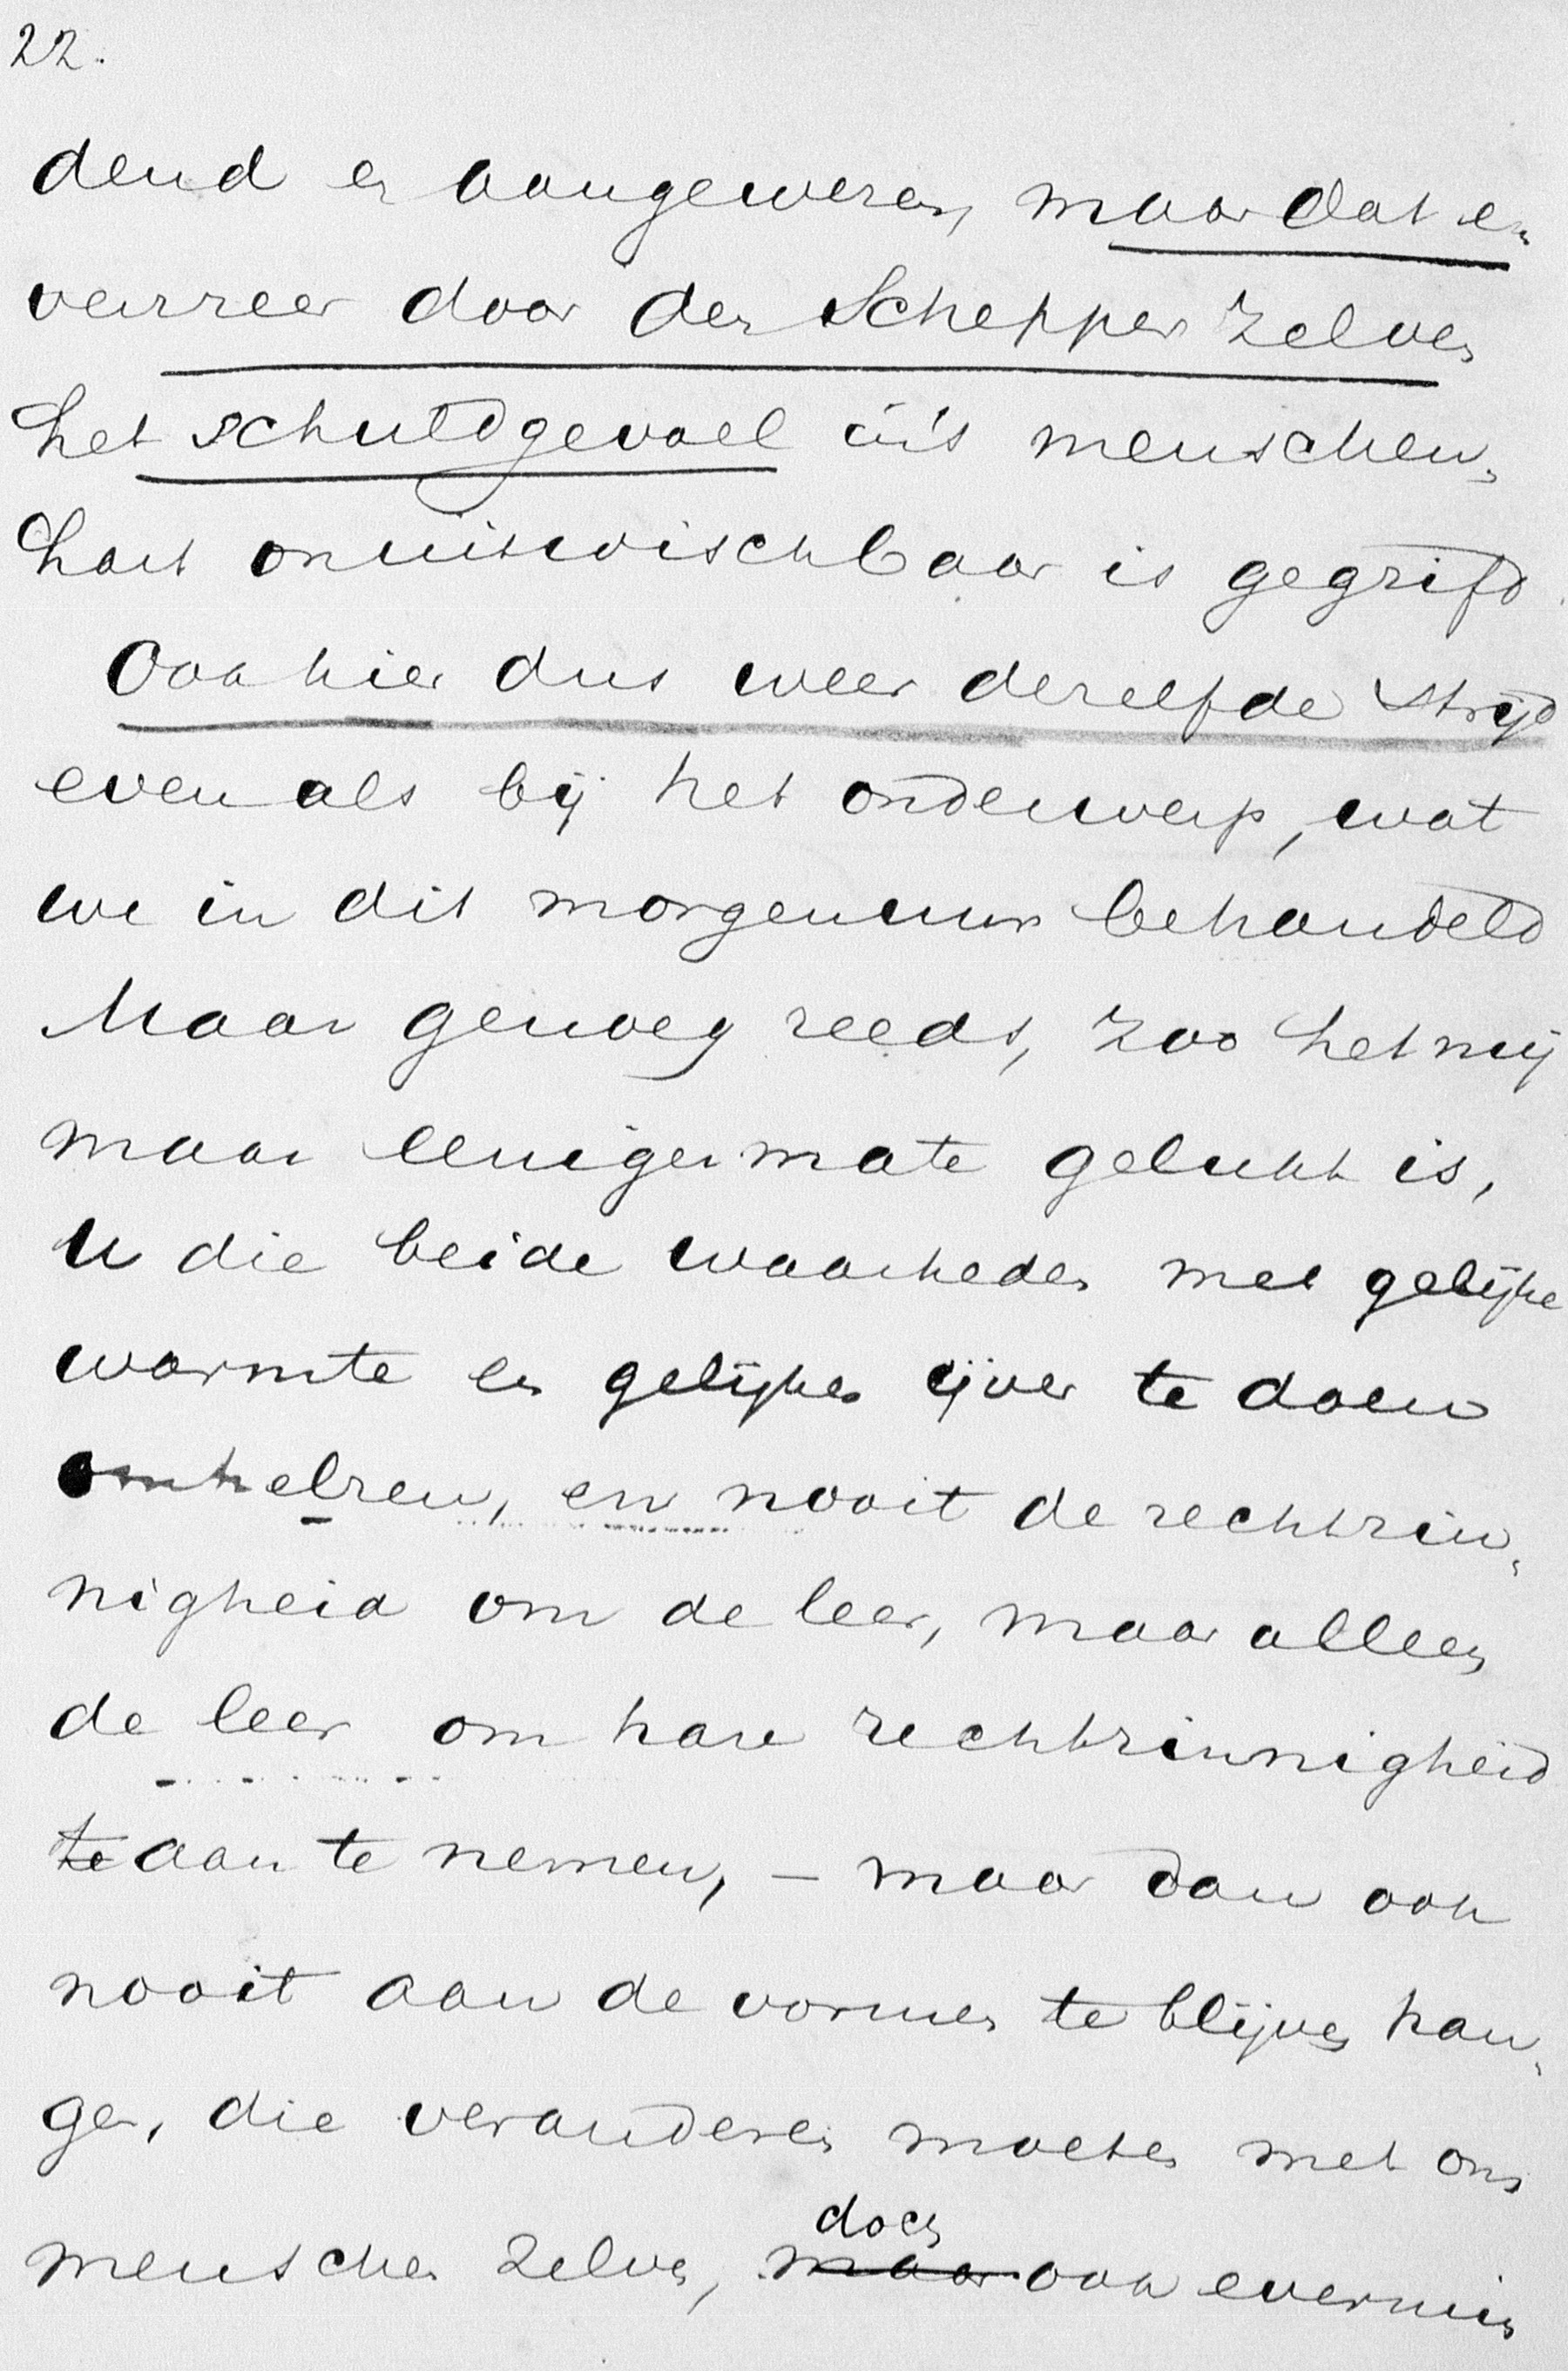 22.
dend en aangewezen, maar dat en
verzeer door den Schepper zelven
het schuldgevoel in's menschen-
hart onuitwischbaar is gegrifd.
Ook hier dus weer dezelfde strijd
even als bij het onderwerp, wat
we in dit morgenuur behandeld
Maar genoeg reeds, zoo het mij
maar eenigermate gelukt is,
U die beide waarheden met gelijke
warmte en gelijken ijver te doen
omhelzen, en nooit de rechtzin-
nigheid om de leer, maar alleen
de leer om hare rechtzinnigheid
te aan te nemen, – maar dan ook
nooit aan de vormen te blijven han-
gen, die veranderen moeten met ons
menschen zelven, doch maar ook evenmin